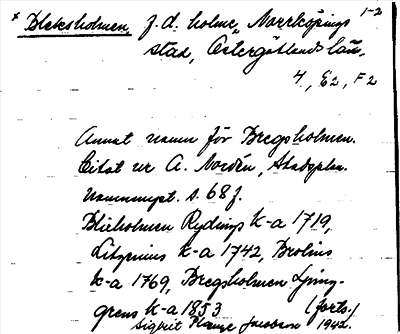 * Bleksholmen, f.d. holme, Norrköpings 1-2
stad, Östergötlands län.
4, E2, F2
Annat namn för Bregsholmen.
Citat ur A. Nordén, Stadsplan.
namnmyst. s. 68 f.
Blieholmen Rydings k-a 1719,
k-a 1742, Brolins
k-a 1769, Bregsholmen Ljung-
grens k-a 1853 (forts.)
Sigurd 1942.